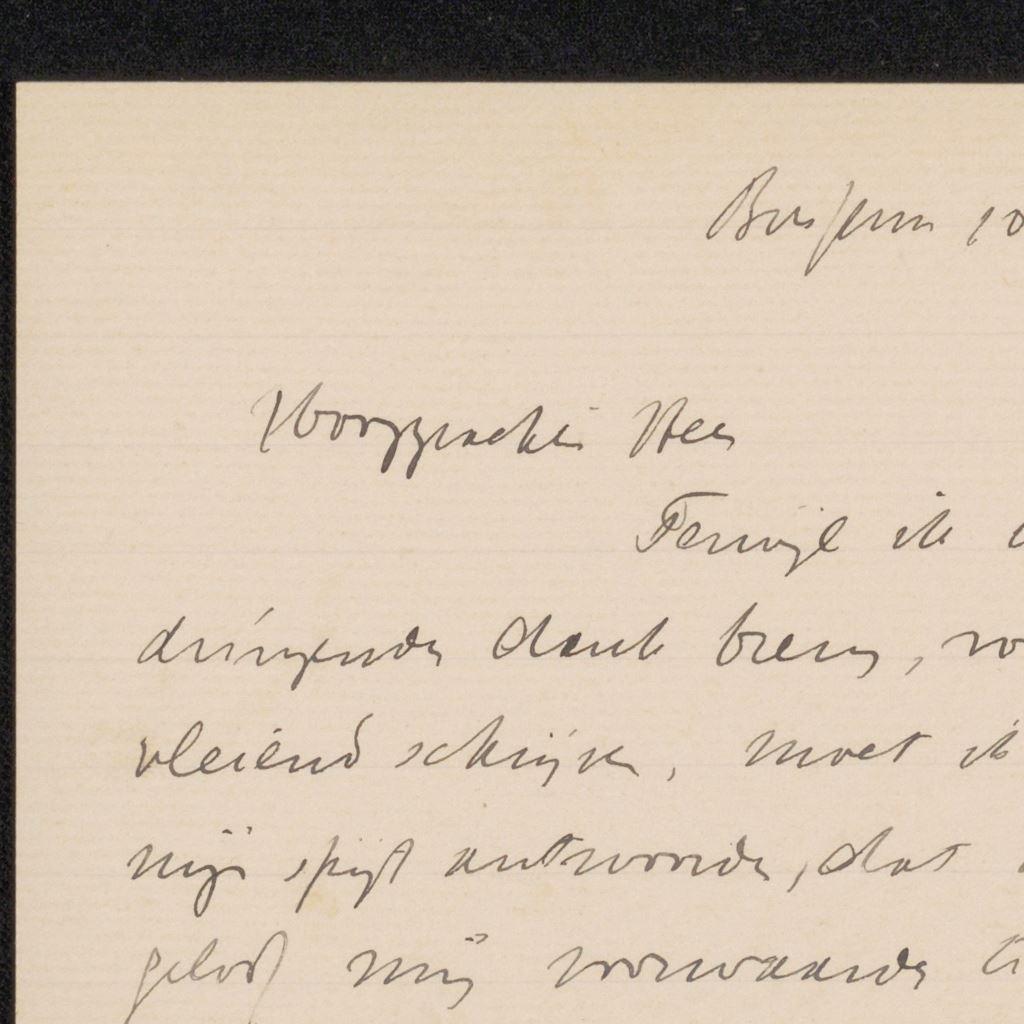 Bussum 10
Hooggeachte Heer
Terwijl ik
dringende dank breng,
vleiend schrijven, moet ik
mij spijt antwoorden, dat
geloof mij voorwaarde